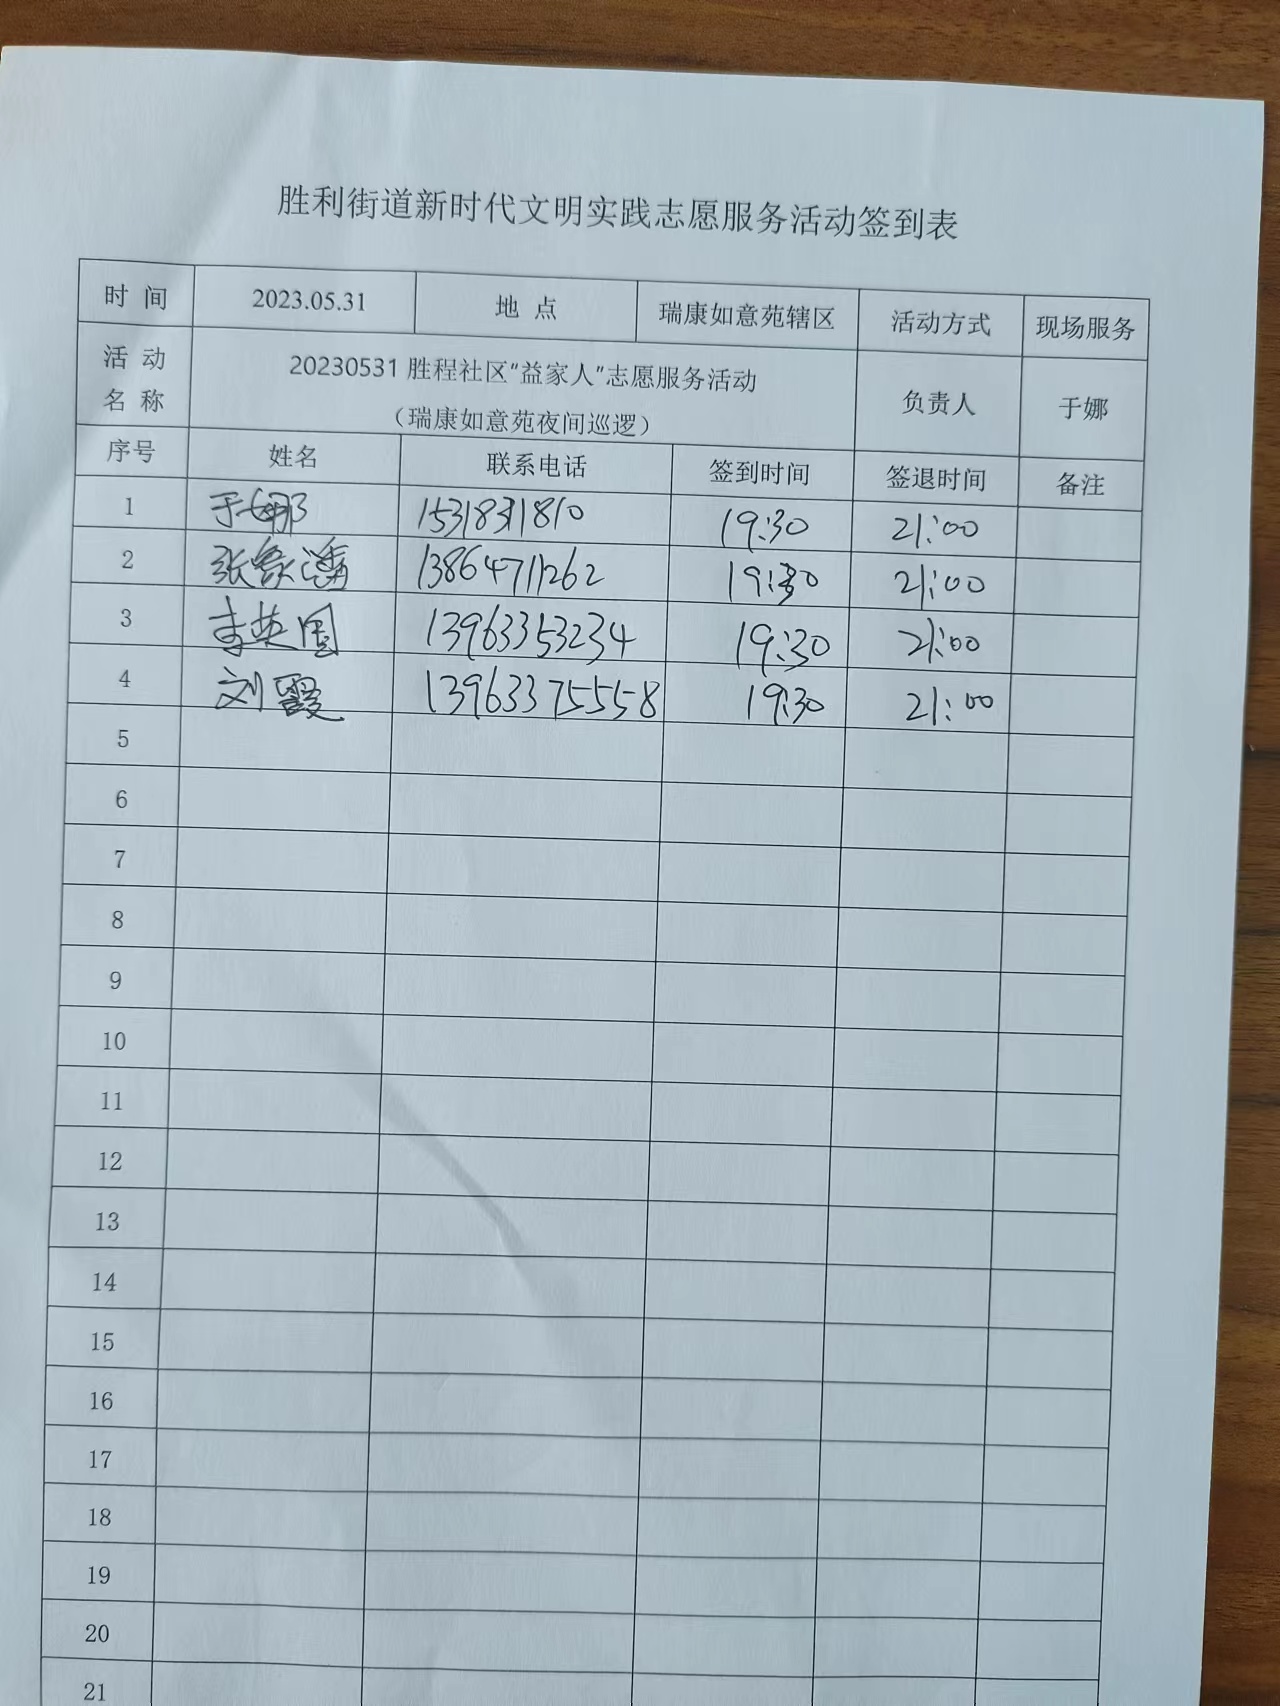 胜利街道新时代文明实践志愿服务活动签到表
时 间 2023.05.31 地 点 瑞康如意苑辖区 活动方式 现场服务
活 动 名 称 20230531 胜程社区“益家人”志愿服务活动 负责人 于娜
（瑞康如意苑夜间巡逻）
序号 姓名 联系电话 签到时间 签退时间 备注
1 于娜 15318311810 19:30 21:00
2 张 13864711262 19:30 21:00
3 李英国 13963353234 19:30 21:00
4 刘霞 13963375558 19:30 21:00
5
6
7
8
9
10
11
12
13
14
15
16
17
18
19
20
21